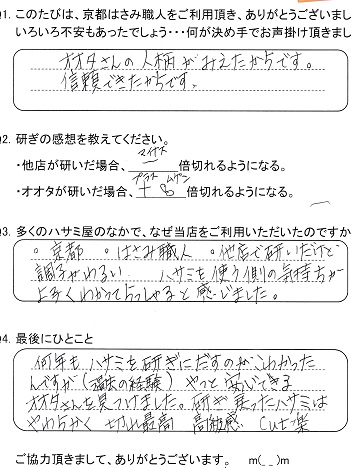 1. このたびは、京都はさみ職人をご利用頂き、ありがとうございまし
いろいろ不安もあったでしょう・・・何が決め手でお声掛け頂きまし
オオタさんの人柄がみえたからです。
信頼できたからです。
2. 研ぎの感想を教えてください。
マイナス
・他店が研いだ場合、 ー 倍切れるようになる。
プラス ムゲン
・オオタが研いだ場合、 + ∞ 倍切れるようになる。
3. 多くのハサミ屋のなかで、なぜ当店をご利用いただいたのですか
。京都 。はさみ職人 。他店で研いだけど
調子がわるい ハサミを使う側の気持ちが
よくわかってらっしゃると感じました。
4. 最後にひとこと
何年も ハサミを研ぎにだすのが こわかった
んですが(過去の経験) やっと 安心できる
オオタさんを見つけました。研ぎ あがったハサミは
やわらかく 切れ最高 高級感 cut楽
ご協力頂きまして、ありがとうございます。 m(_ _)m